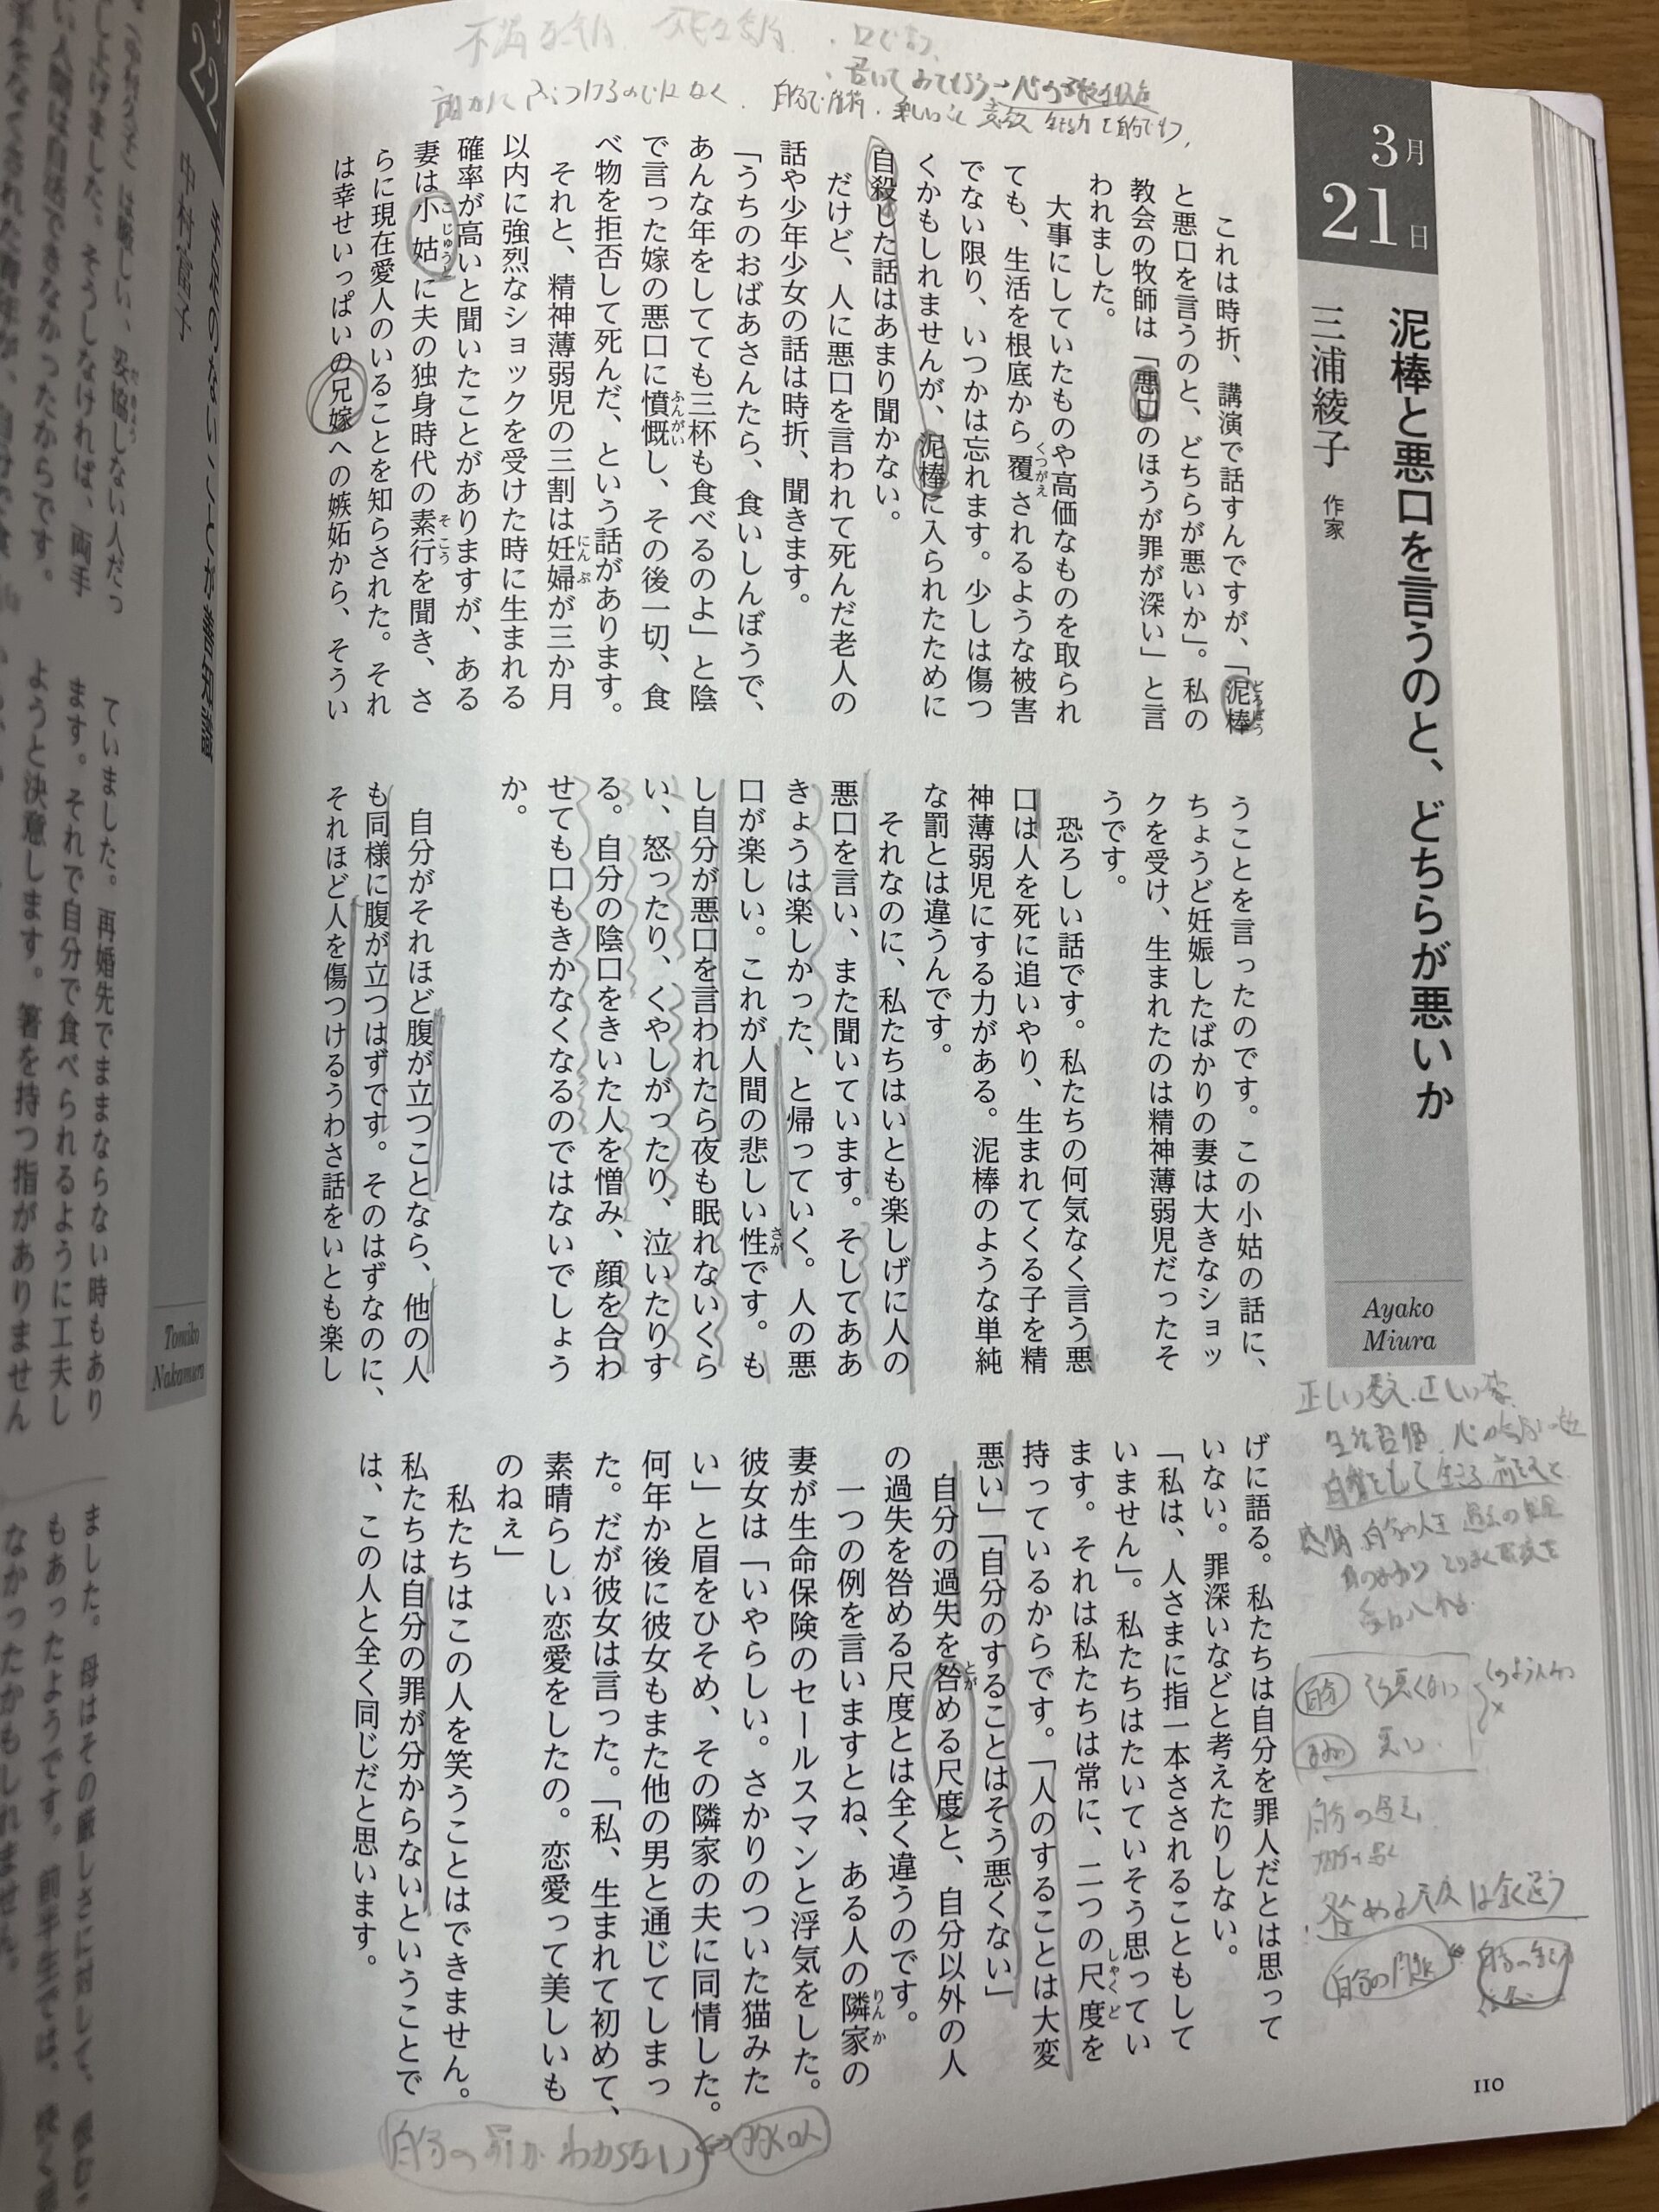 3月
21日
泥棒と悪口を言うのと、どちらが悪いか
三浦綾子 作家
Ayako
Miura
これは時折、講演で話すんですが、「泥棒
と悪口を言うのと、どちらが悪いか」。私の
教会の牧師は「悪口のほうが罪が深い」と言
われました。
大事にしていたものや高価なものを取られ
ても、生活を根底から覆されるような被害
でない限り、いつかは忘れます。少しは傷つ
くかもしれませんが、泥棒に入られたために
自殺した話はあまり聞かない。
だけど、人に悪口を言われて死んだ老人の
話や少年少女の話は時折、聞きます。
「うちのおばあさんたら、食いしんぼうで、
あんな年をしてても三杯も食べるのよ」と陰
で言った嫁の悪口に憤慨し、その後一切、食
べ物を拒否して死んだ、という話があります。
それと、精神薄弱児の三割は妊婦が三か月
以内に強烈なショックを受けた時に生まれる
確率が高いと聞いたことがありますが、ある
妻は小姑に夫の独身時代の素行を聞き、さ
らに現在愛人のいることを知らされた。それ
は幸せいっぱいの兄嫁への嫉妬から、そうい
うことを言ったのです。この小姑の話に、
ちょうど妊娠したばかりの妻は大きなショッ
クを受け、生まれたのは精神薄弱児だったそ
うです。
恐ろしい話です。私たちの何気なく言う悪
口は人を死に追いやり、生まれてくる子を精
神薄弱児にする力がある。泥棒のような単純
な罰とは違うんです。
それなのに、私たちはいとも楽しげに人の
悪口を言い、また聞いています。そしてああ
きょうは楽しかった、と帰っていく。人の悪
口が楽しい。これが人間の悲しい性です。も
し自分が悪口を言われたら夜も眠れないくら
い、怒ったり、くやしがったり、泣いたりす
る。自分の陰口をきいた人を憎み、顔を合わ
せても口もきかなくなるのではないでしょう
か。
自分がそれほど腹が立つことなら、他の人
も同様に腹が立つはずです。そのはずなのに、
それほど人を傷つけるうわさ話をいとも楽し
げに語る。私たちは自分を罪人だとは思って
いない。罪深いなどと考えたりしない。
「私は、人さまに指一本さされることもして
いません」。私たちはたいていそう思ってい
ます。それは私たちは常に、二つの尺度を
持っているからです。「人のすることは大変
悪い」「自分のすることはそう悪くない」
自分の過失を咎める尺度と、自分以外の人
の過失を咎める尺度とは全く違うのです。
一つの例を言いますとね、ある人の隣家の
妻が生命保険のセールスマンと浮気をした。
彼女は「いやらしい。さかりのついた猫みた
い」と眉をひそめ、その隣家の夫に同情した。
何年か後に彼女もまた他の男と通じてしまっ
た。だが彼女は言った。「私、生まれて初めて、
素晴らしい恋愛をしたの。恋愛って美しいも
のねぇ」
私たちはこの人を笑うことはできません。
私たちは自分の罪が分からないということで
は、この人と全く同じだと思います。
110
咎める尺度は全く違う
自分の罪がわからない
中村富子
Tomiko
Nakamura
ていました。再婚先でままならない時もあり
ます。それで自分で食べられるように工夫し
ようと決意します。箸を持つ指がありません
ました。母はその厳しさに対して、
もあったようです。前半生では、
なかったかもしれません。